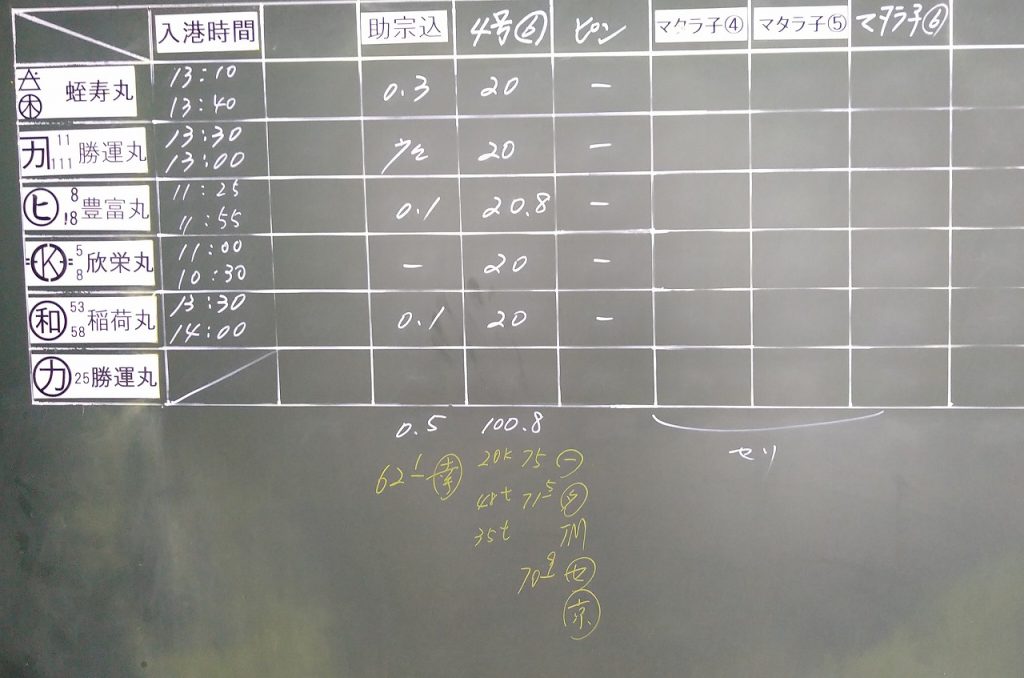 入港時間 助宗込 4号⑥ ピン マタラ子④ マタラ子⑤ マタラ子⑥
蛭寿丸 13:10 13:40 0.3 20 ー
カ 11 111 勝運丸 13:30 13:00 少々 20 ー
ヒ 8 18 豊富丸 11:25 11:55 0.1 20.8 ー
K 5 8 欣栄丸 11:00 10:30 ー 20 ー
和 53 58 稲荷丸 13:30 14:00 0.1 20 ー
カ 25 勝運丸
0.5 100.8
セリ
62 1 20t 75 一
48t 71 5
35t TM
70 9 セ
京